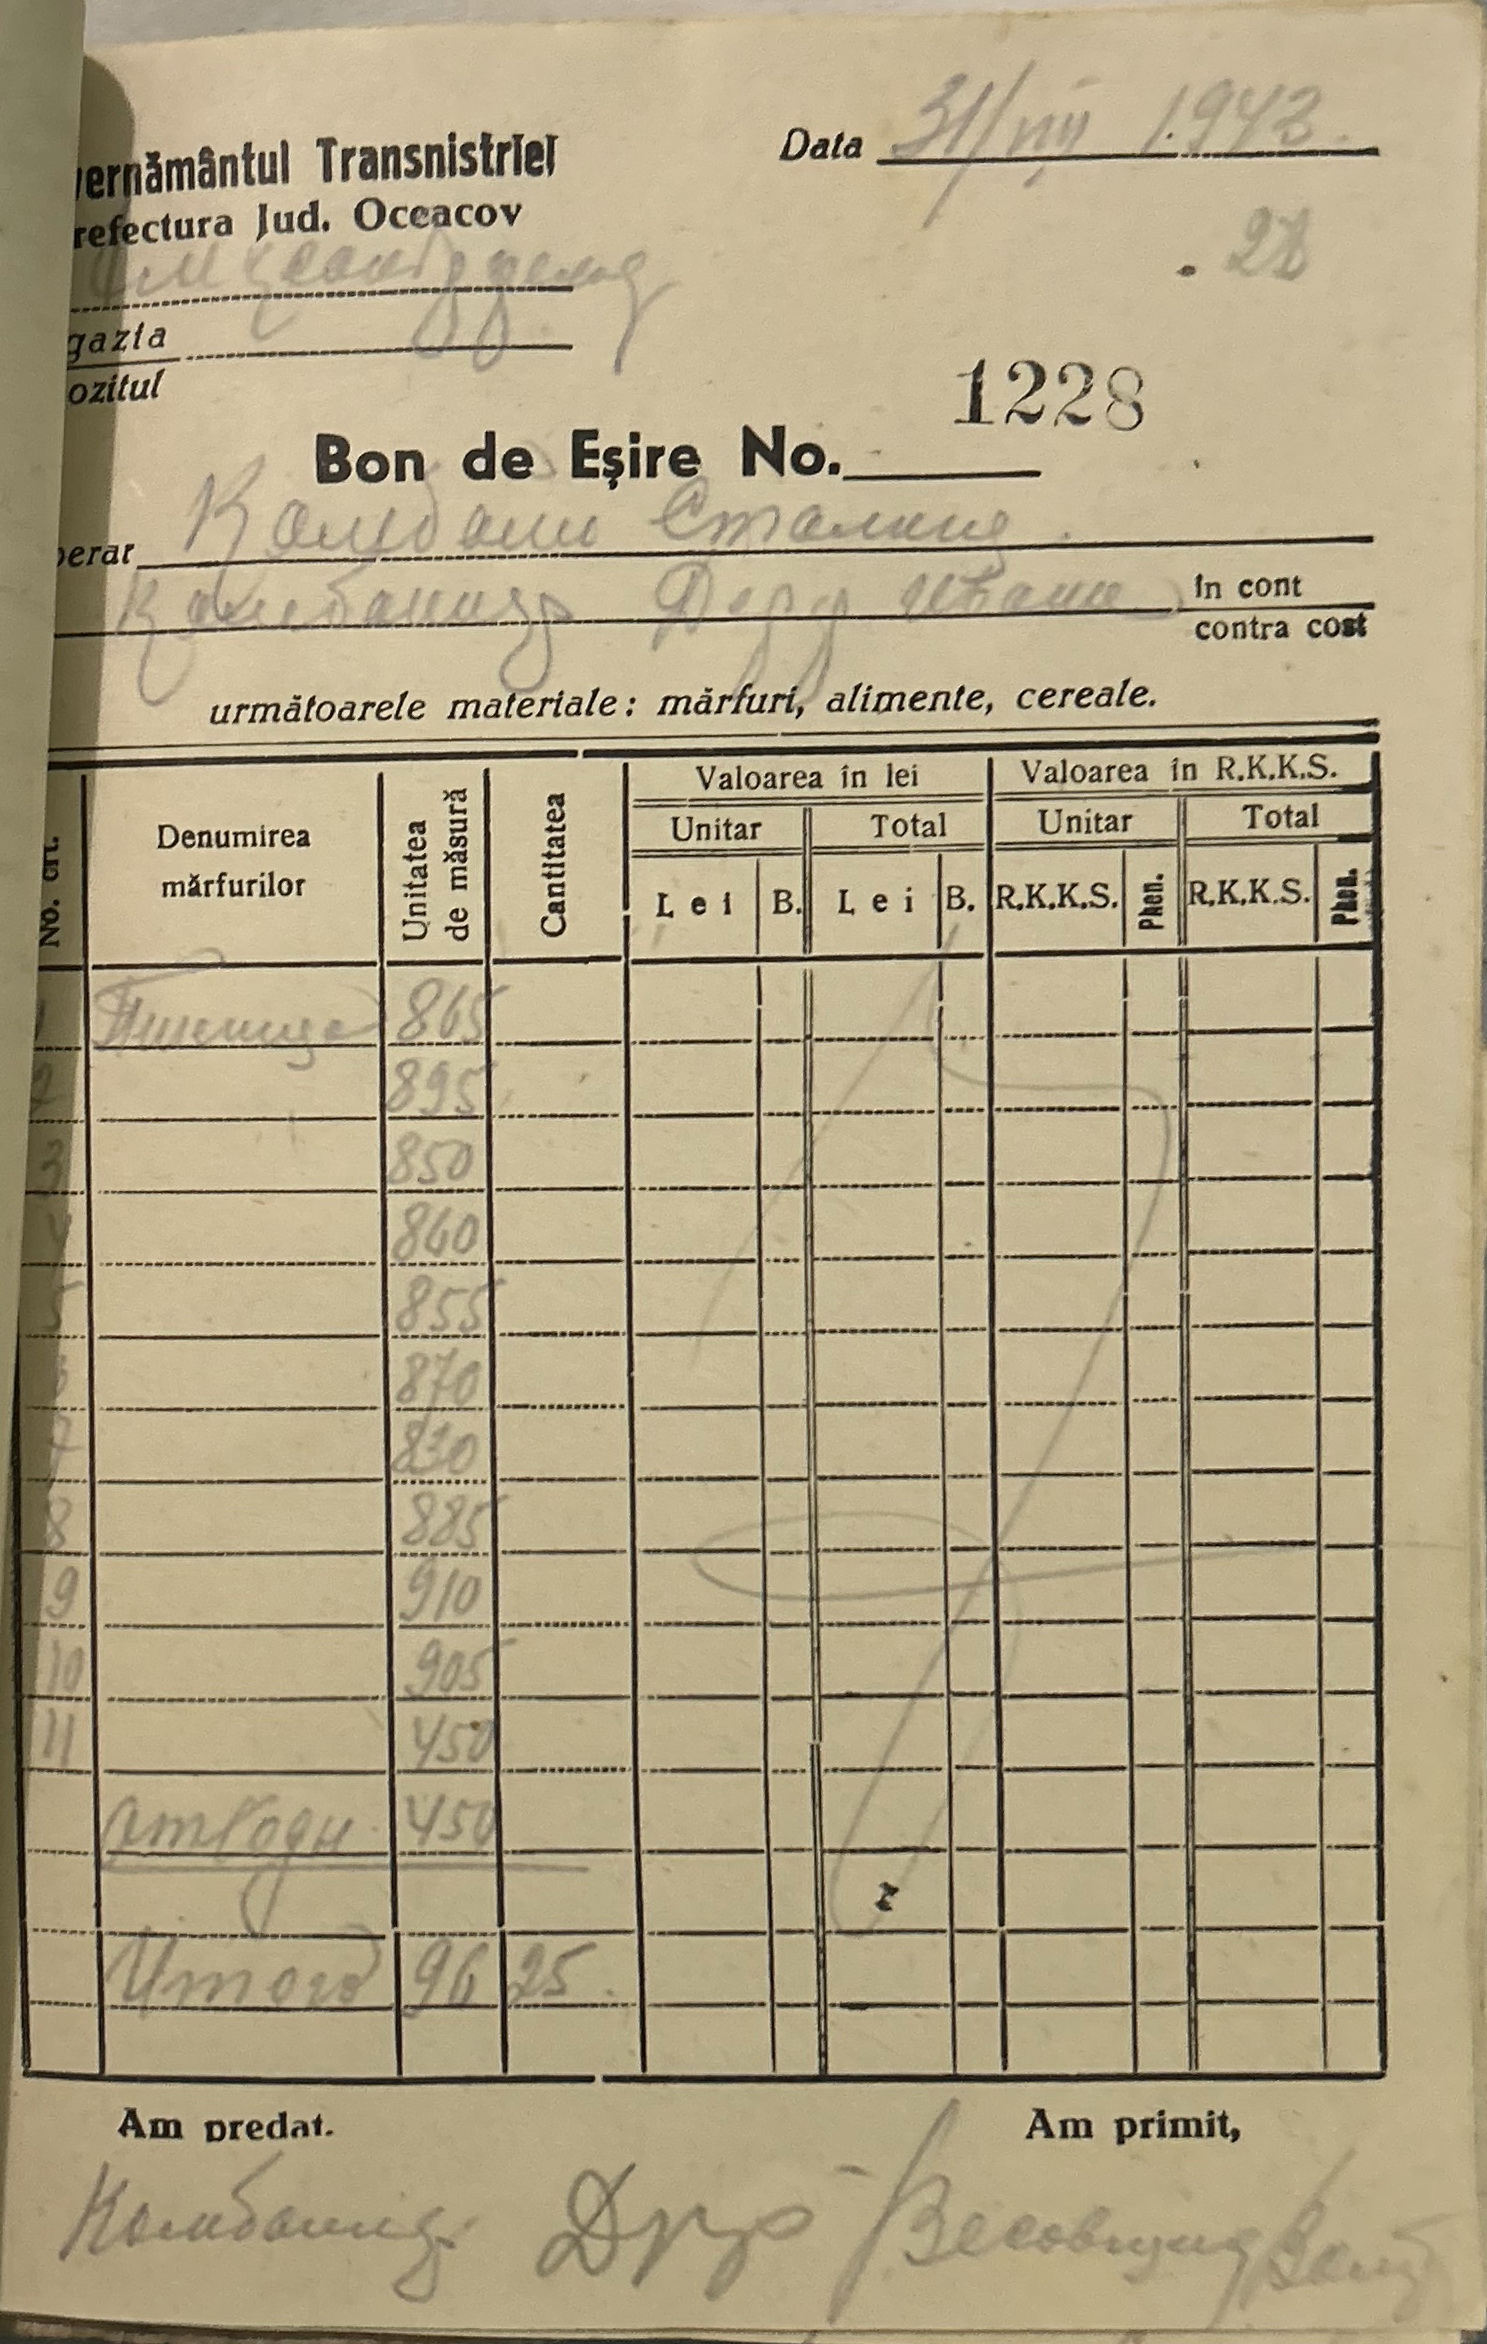 vernământul Transnistriei
refectura Jud. Oceacov
Data 31/VIII 1943.
gazia
ozitul
1228
Bon de Eşire No.
perar Комбайн Сталинд.
Комбайнер Дерр Иван
în cont
contra cost
următoarele materiale: mărfuri, alimente, cereale.
No. crt.
Denumirea mărfurilor
Unitatea de măsură
Cantitatea
Valoarea în lei
Valoarea în R.K.K.S.
Unitar
Total
Unitar
Total
Lei
B.
Lei
B.
R.K.K.S.
Phen.
R.K.K.S.
Phen.
1 Пшеница 865
2 895
3 850
4 860
5 855
6 870
7 830
8 885
9 910
10 905
11 450
отходы 450
Итого 9625.
Am predat.
Am primit,
Комбайнер Дерр Весовщик